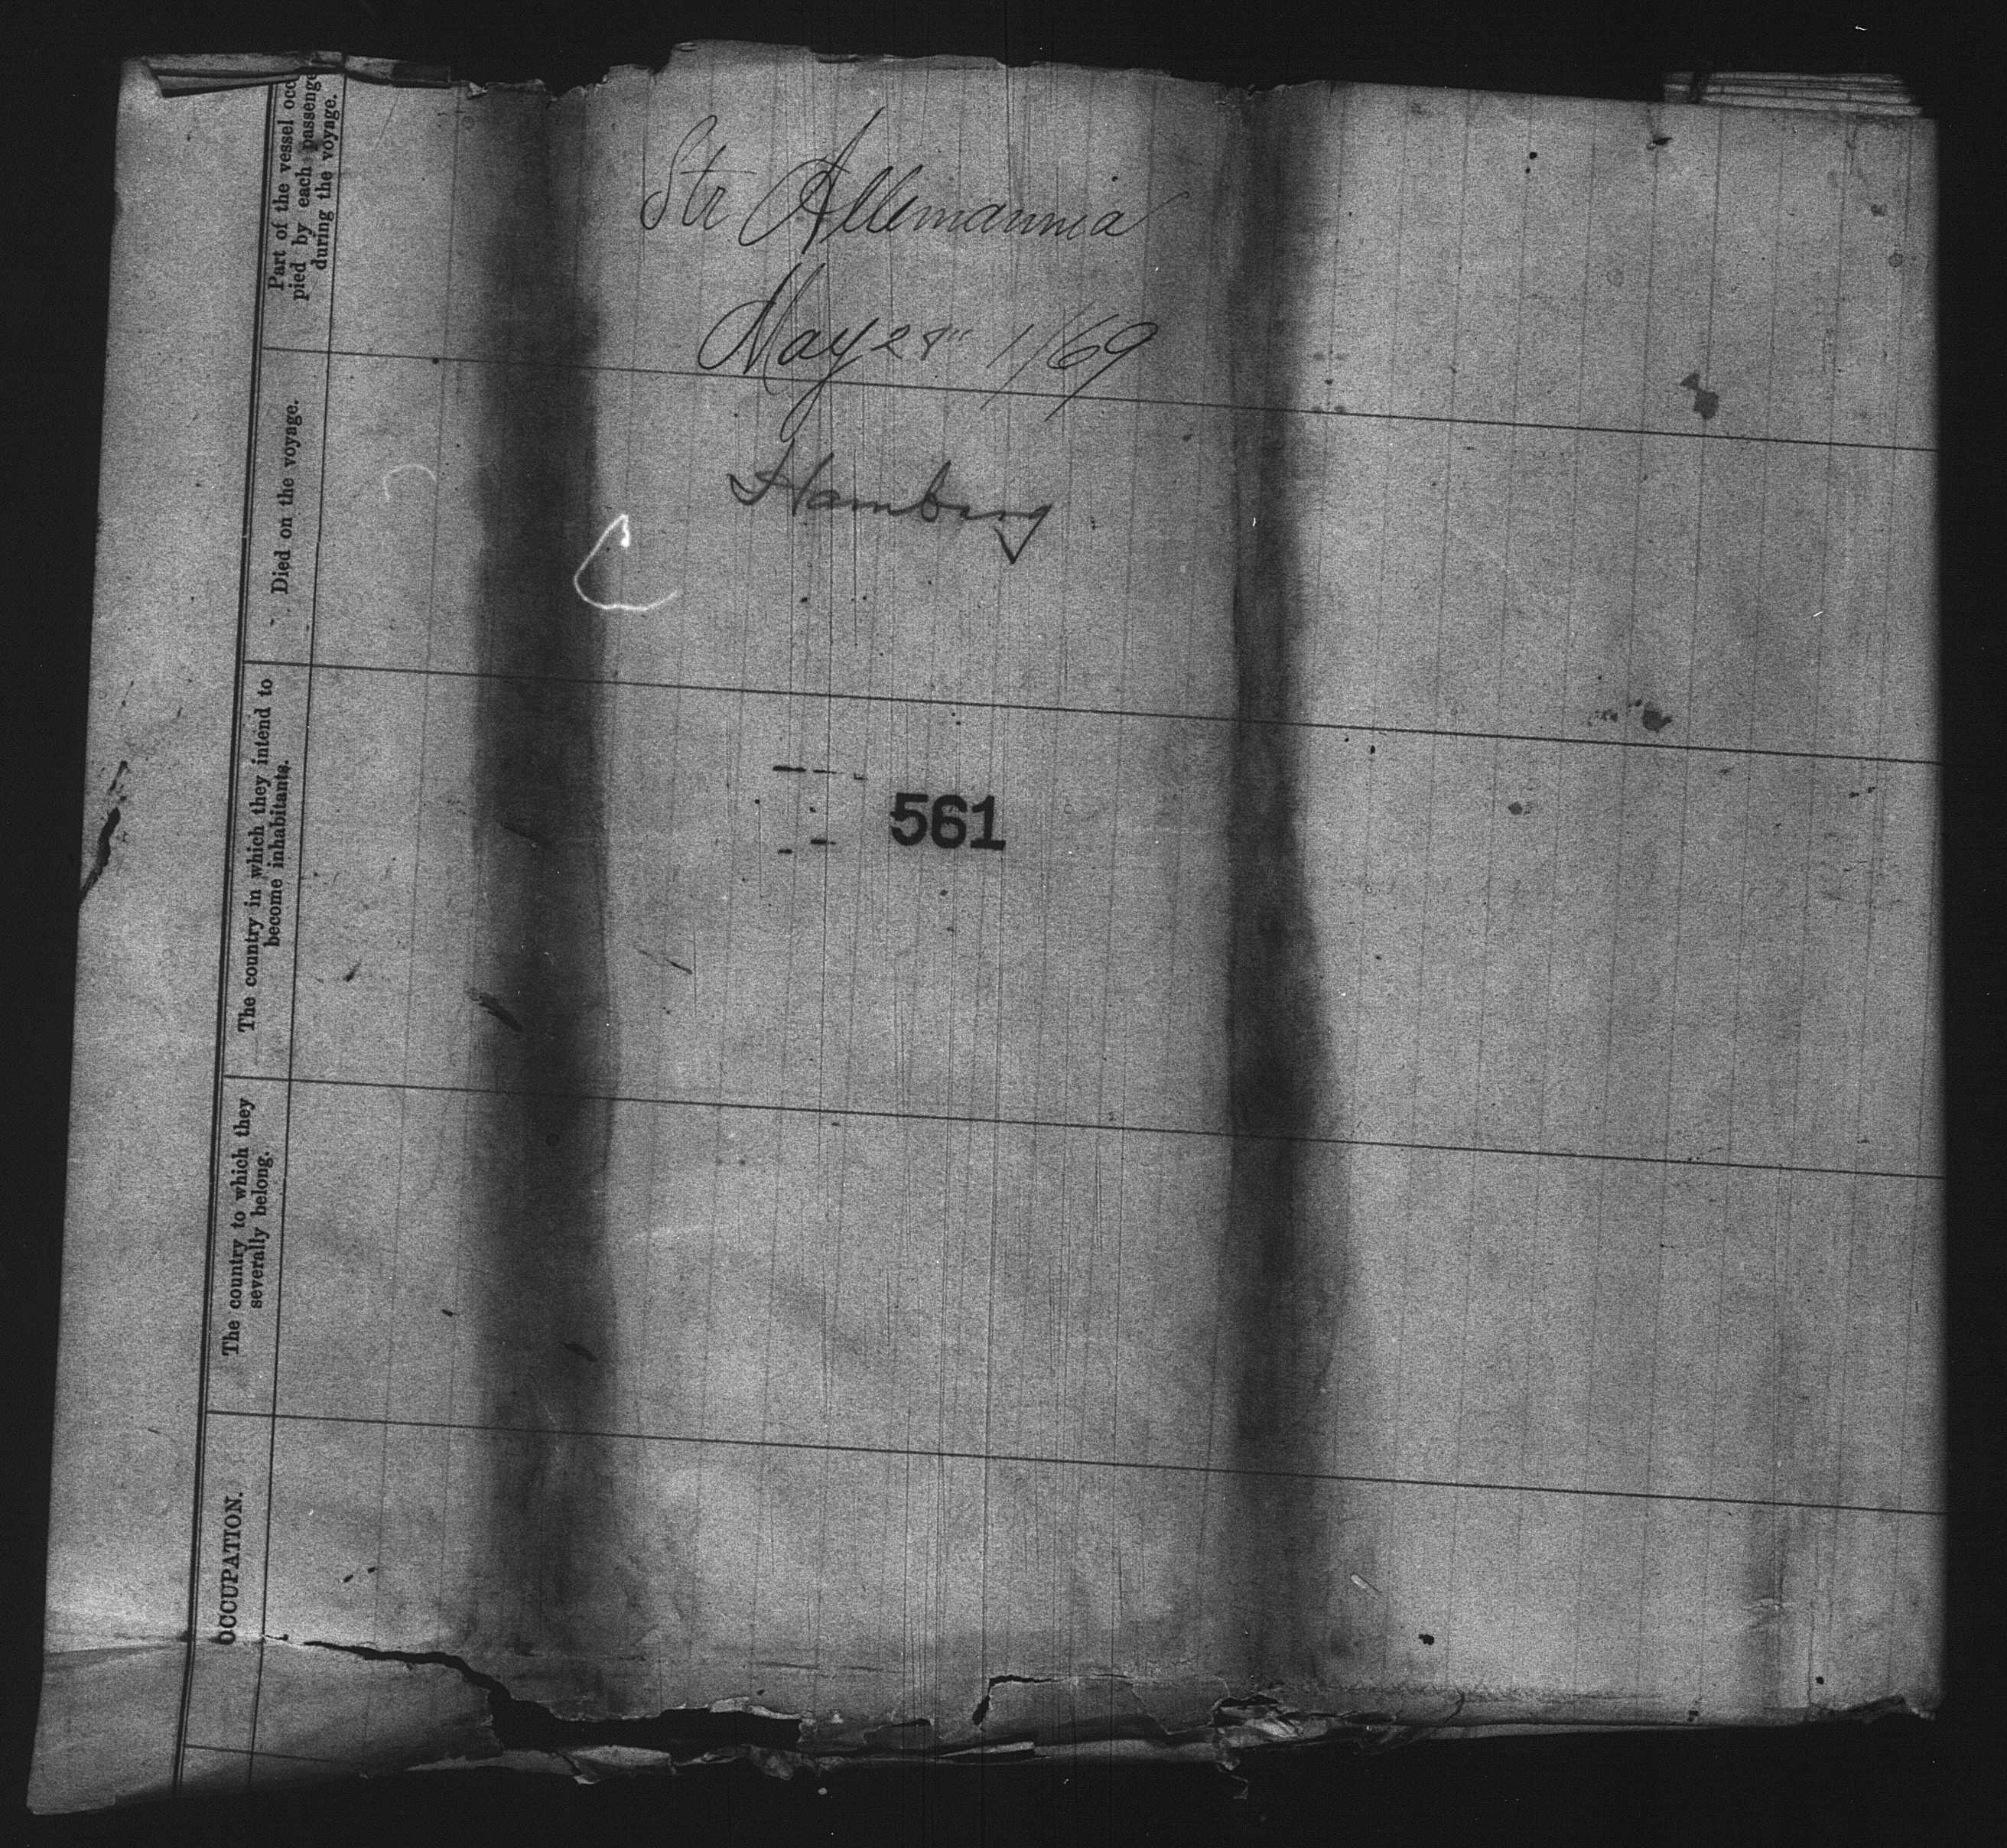 Str Allemannia
May 28" 1/69
Hamburg
561
Part of the vessel occ
pied by each passenge
during the voyage.
Died on the voyage.
The country in which they intend to
become inhabitants.
The country to which they
severally belong.
OCCUPATION.